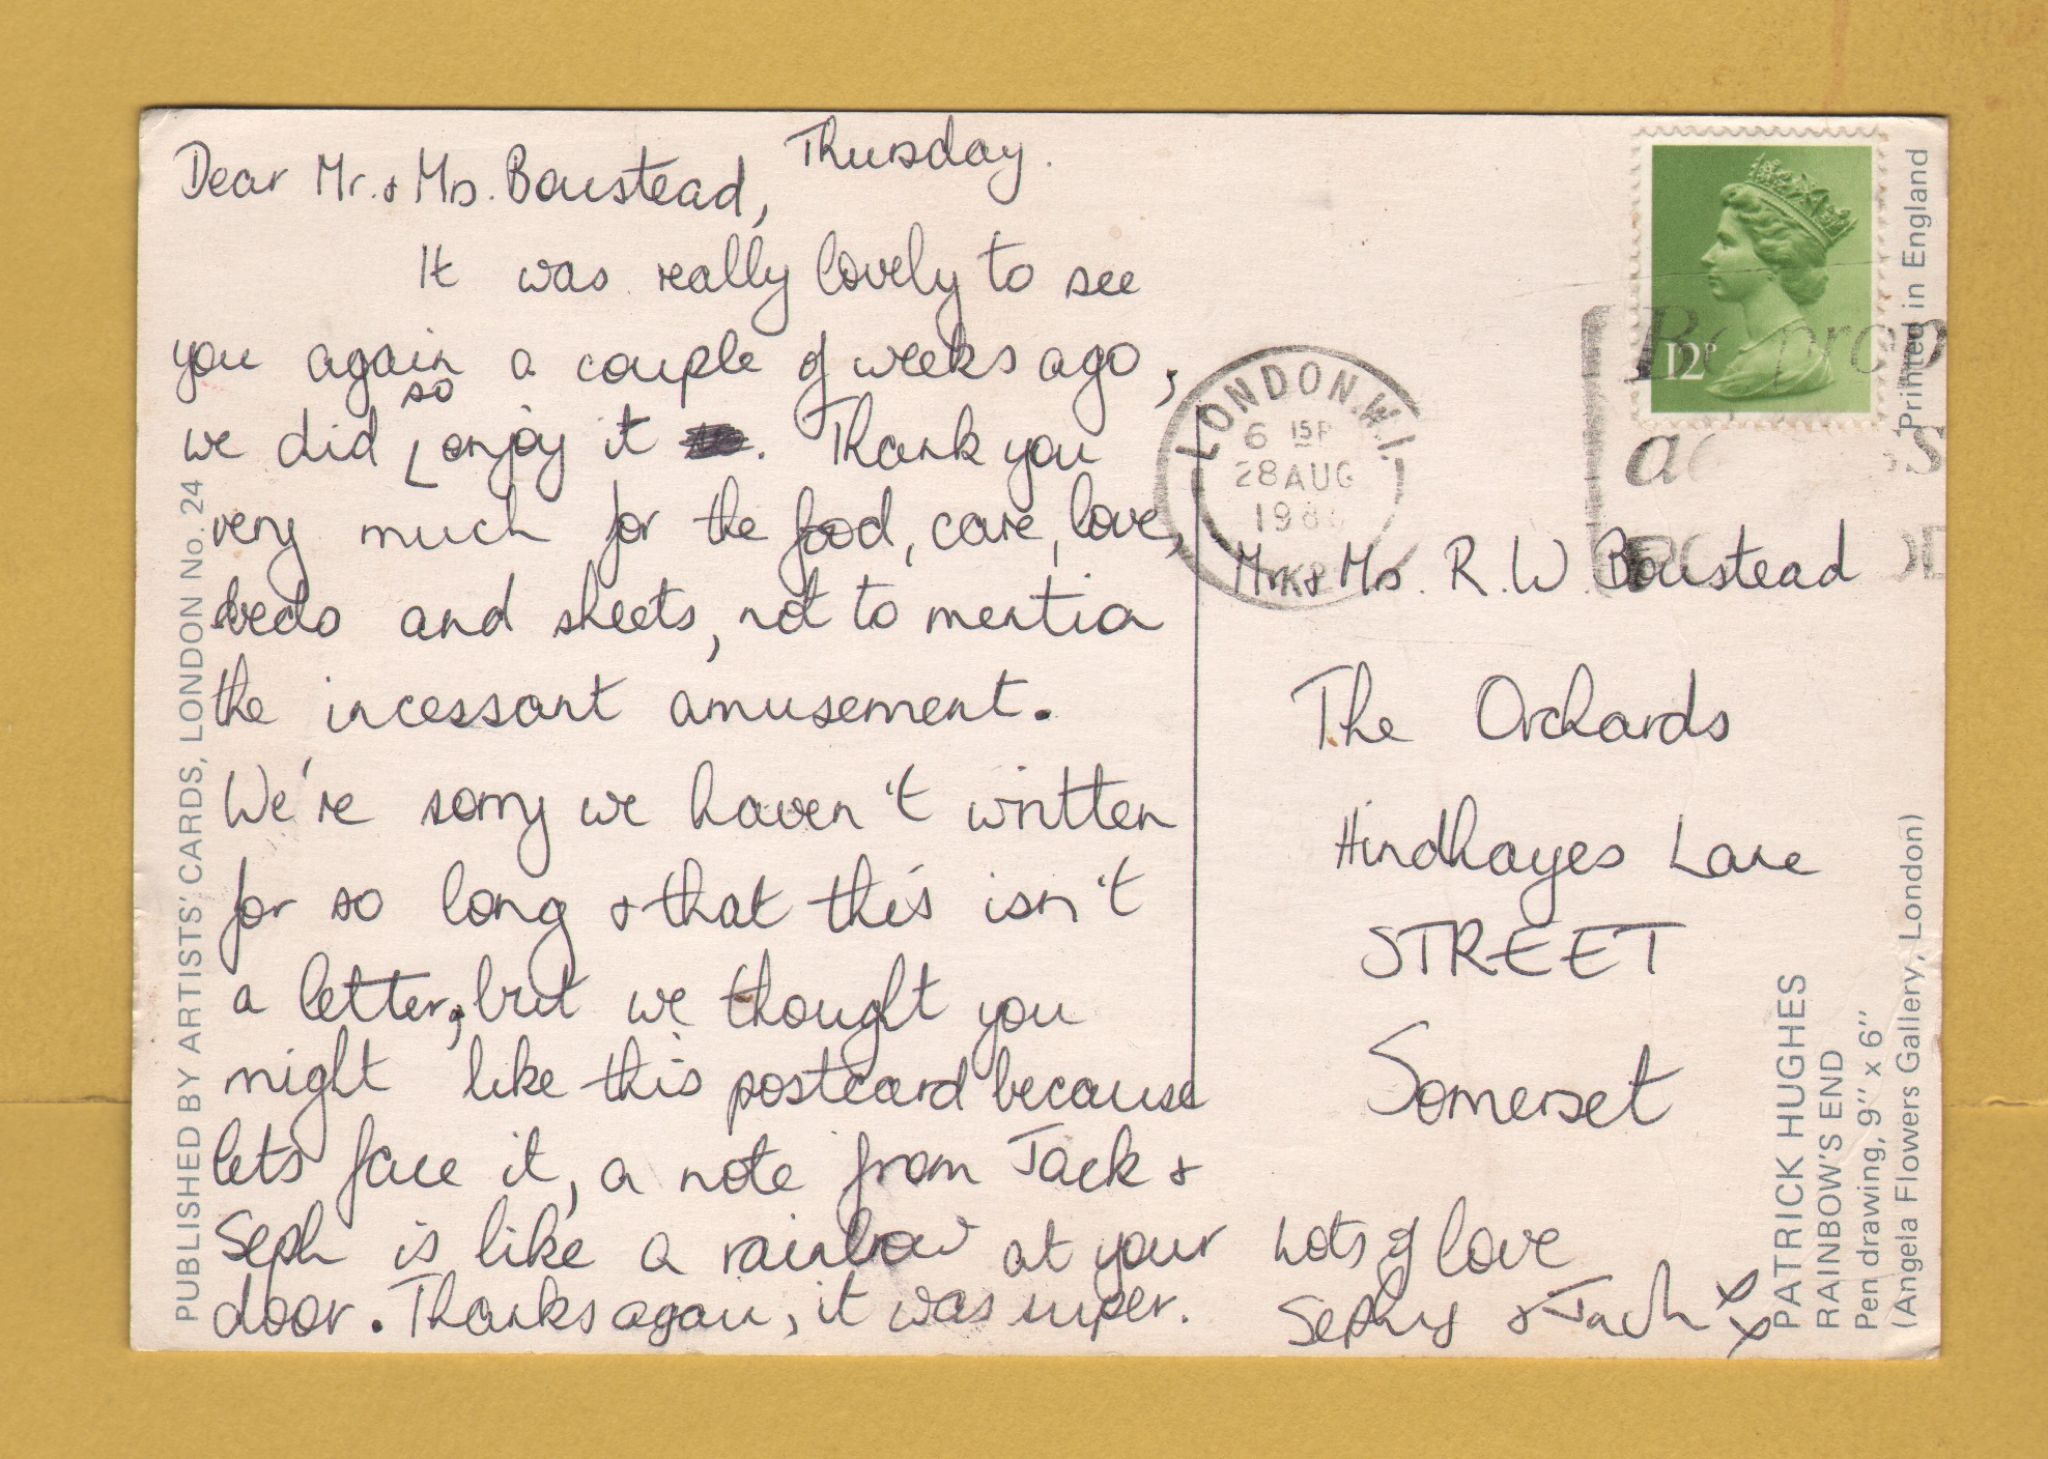 Thursday.
Dear Mr. & Mrs. Boustead,
It was really lovely to see
you again a couple of weeks ago,
we did so enjoy it. Thank you
very much for the food, care, love,
beds and sheets, not to mention
the incessant amusement.
We're sorry we haven't written
for so long & that this isn't
a letter, but we thought you
might like this postcard because
lets face it, a note from Jack &
Seph is like a rainbow at your
door. Thanks again, it was super.
Lots of love
Sephy & Jack xx
Mr & Mrs. R. W. Boustead
The Orchards
Hindhayes Lane
STREET
Somerset
12P
LONDON.W.1.
6 15P
28 AUG
Be prop
PUBLISHED BY ARTISTS' CARDS, LONDON No. 24
Printed in England
PATRICK HUGHES
RAINBOW'S END
Pen drawing, 9" x 6"
(Angela Flowers Gallery, London)